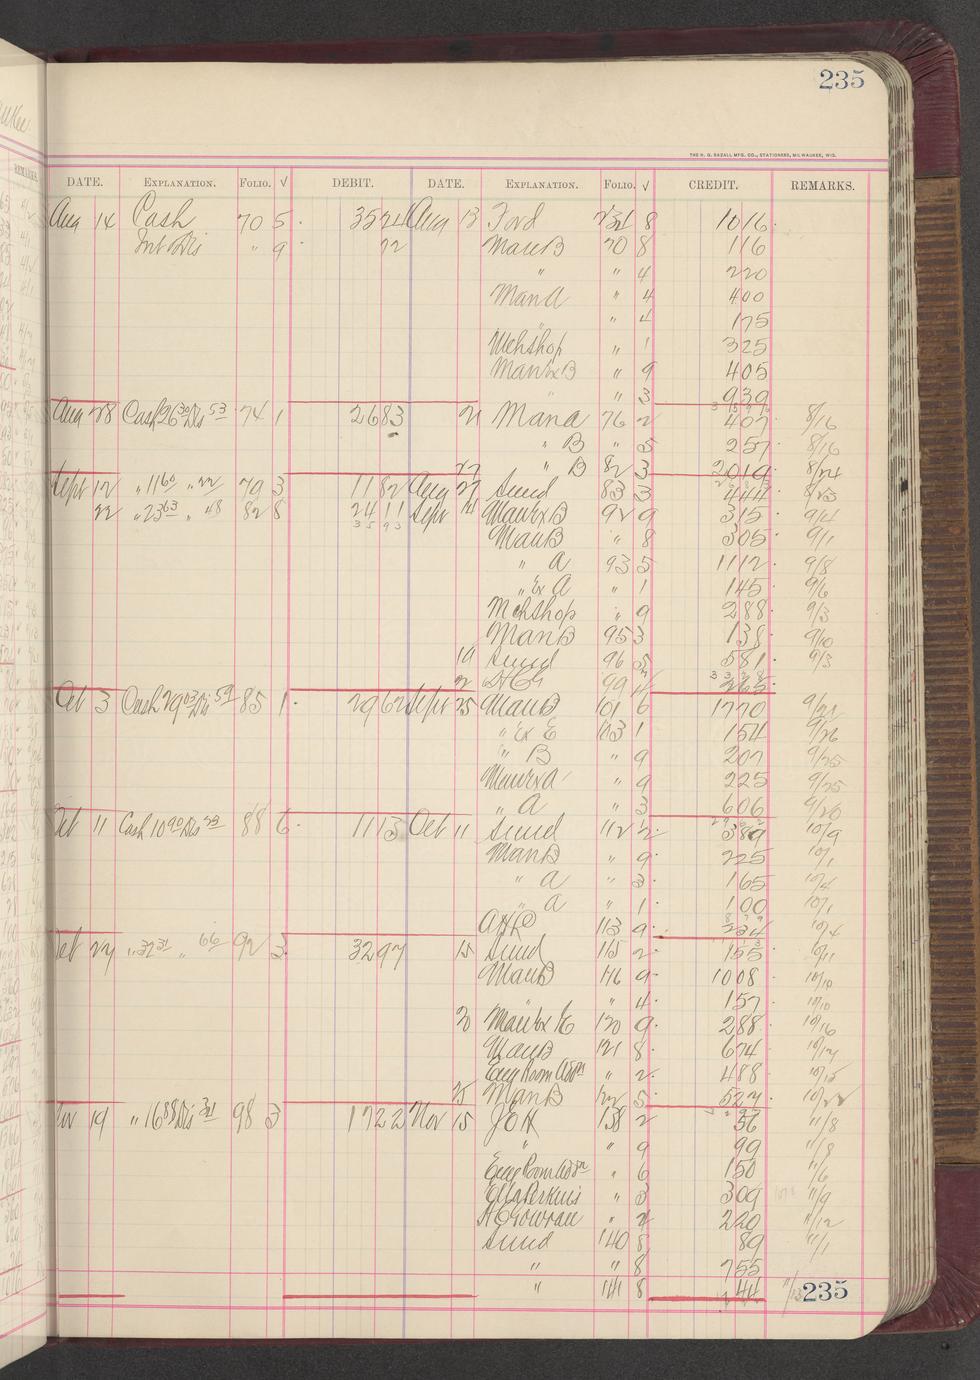 235
THE H. G. RAZALL MFG. CO., STATIONERS, MILWAUKEE, WIS.
DATE. EXPLANATION. FOLIO. √ DEBIT. DATE. EXPLANATION. FOLIO. √ CREDIT. REMARKS.
Aug 14 Cash 70 5 3524 Aug 13 Ford 8 1016
" 9 72 Man B 70 8 116
" " 4 220
Man A " 4 400
" 4 175
Mchshop " 1 325
Man Ex B " 9 405
" 3 939
Aug 28 Cash 26 30 Dis 53 74 1 2683 21 Man A 76 2 407 8/16
" B " 5 257 8/16
27 " B 82 3 2019 8/24
Sept 12 " 11 60 " 22 79 3 1182 Aug 27 Sund 83 3 444 8/23
22 " 23 63 " 48 82 8 2411 Sept 14 Man Ex B 92 9 315 9/4
35 93
Man B " 8 305 9/1
" A 93 5 1112 9/8
" Ex A " 1 145 9/6
Mchshop " 9 288 9/3
Man B 95 3 138 9/10
19 Sund 96 5 581 9/3
99 265
Oct 3 Cash 29 03 Dis 59 85 1 2962 Sept 25 Man B 101 6 1770
" Ex E 113 1 154 9/26
" B " 9 207 9/25
Man Ex A " 9 225 9/25
" A " 3 606 9/20
Oct 11 Cash 10 90 Dis 23 88 6 1113 Oct 11 Sund 112 2 389 10/9
Man B " 9 225 10/1
" A " 3 165 10/4
" A " 1 100 10/1
113 9 234 10/4
Oct 24 " 32 31 " 66 92 3 3297 15 Sund 115 2 155 10/11
Man B 116 9 1008 10/10
" " 4 157 10/10
20 Man Ex E 120 9 288 10/16
Man B 121 8 674 10/17
Eng Room " 2 488 10/15
25 Man B 122 5 527
Nov 19 " 16 88 Dis 34 98 3 1722 Nov 15 J O H 138 2 56 11/8
" " 9 99 11/8
Eng Room " 6 150 11/6
Ella Perkins " 3 309 11/9
" 220 11/12
Sund 140 8 89 11/1
" " 8 755
" 141 8 44
235